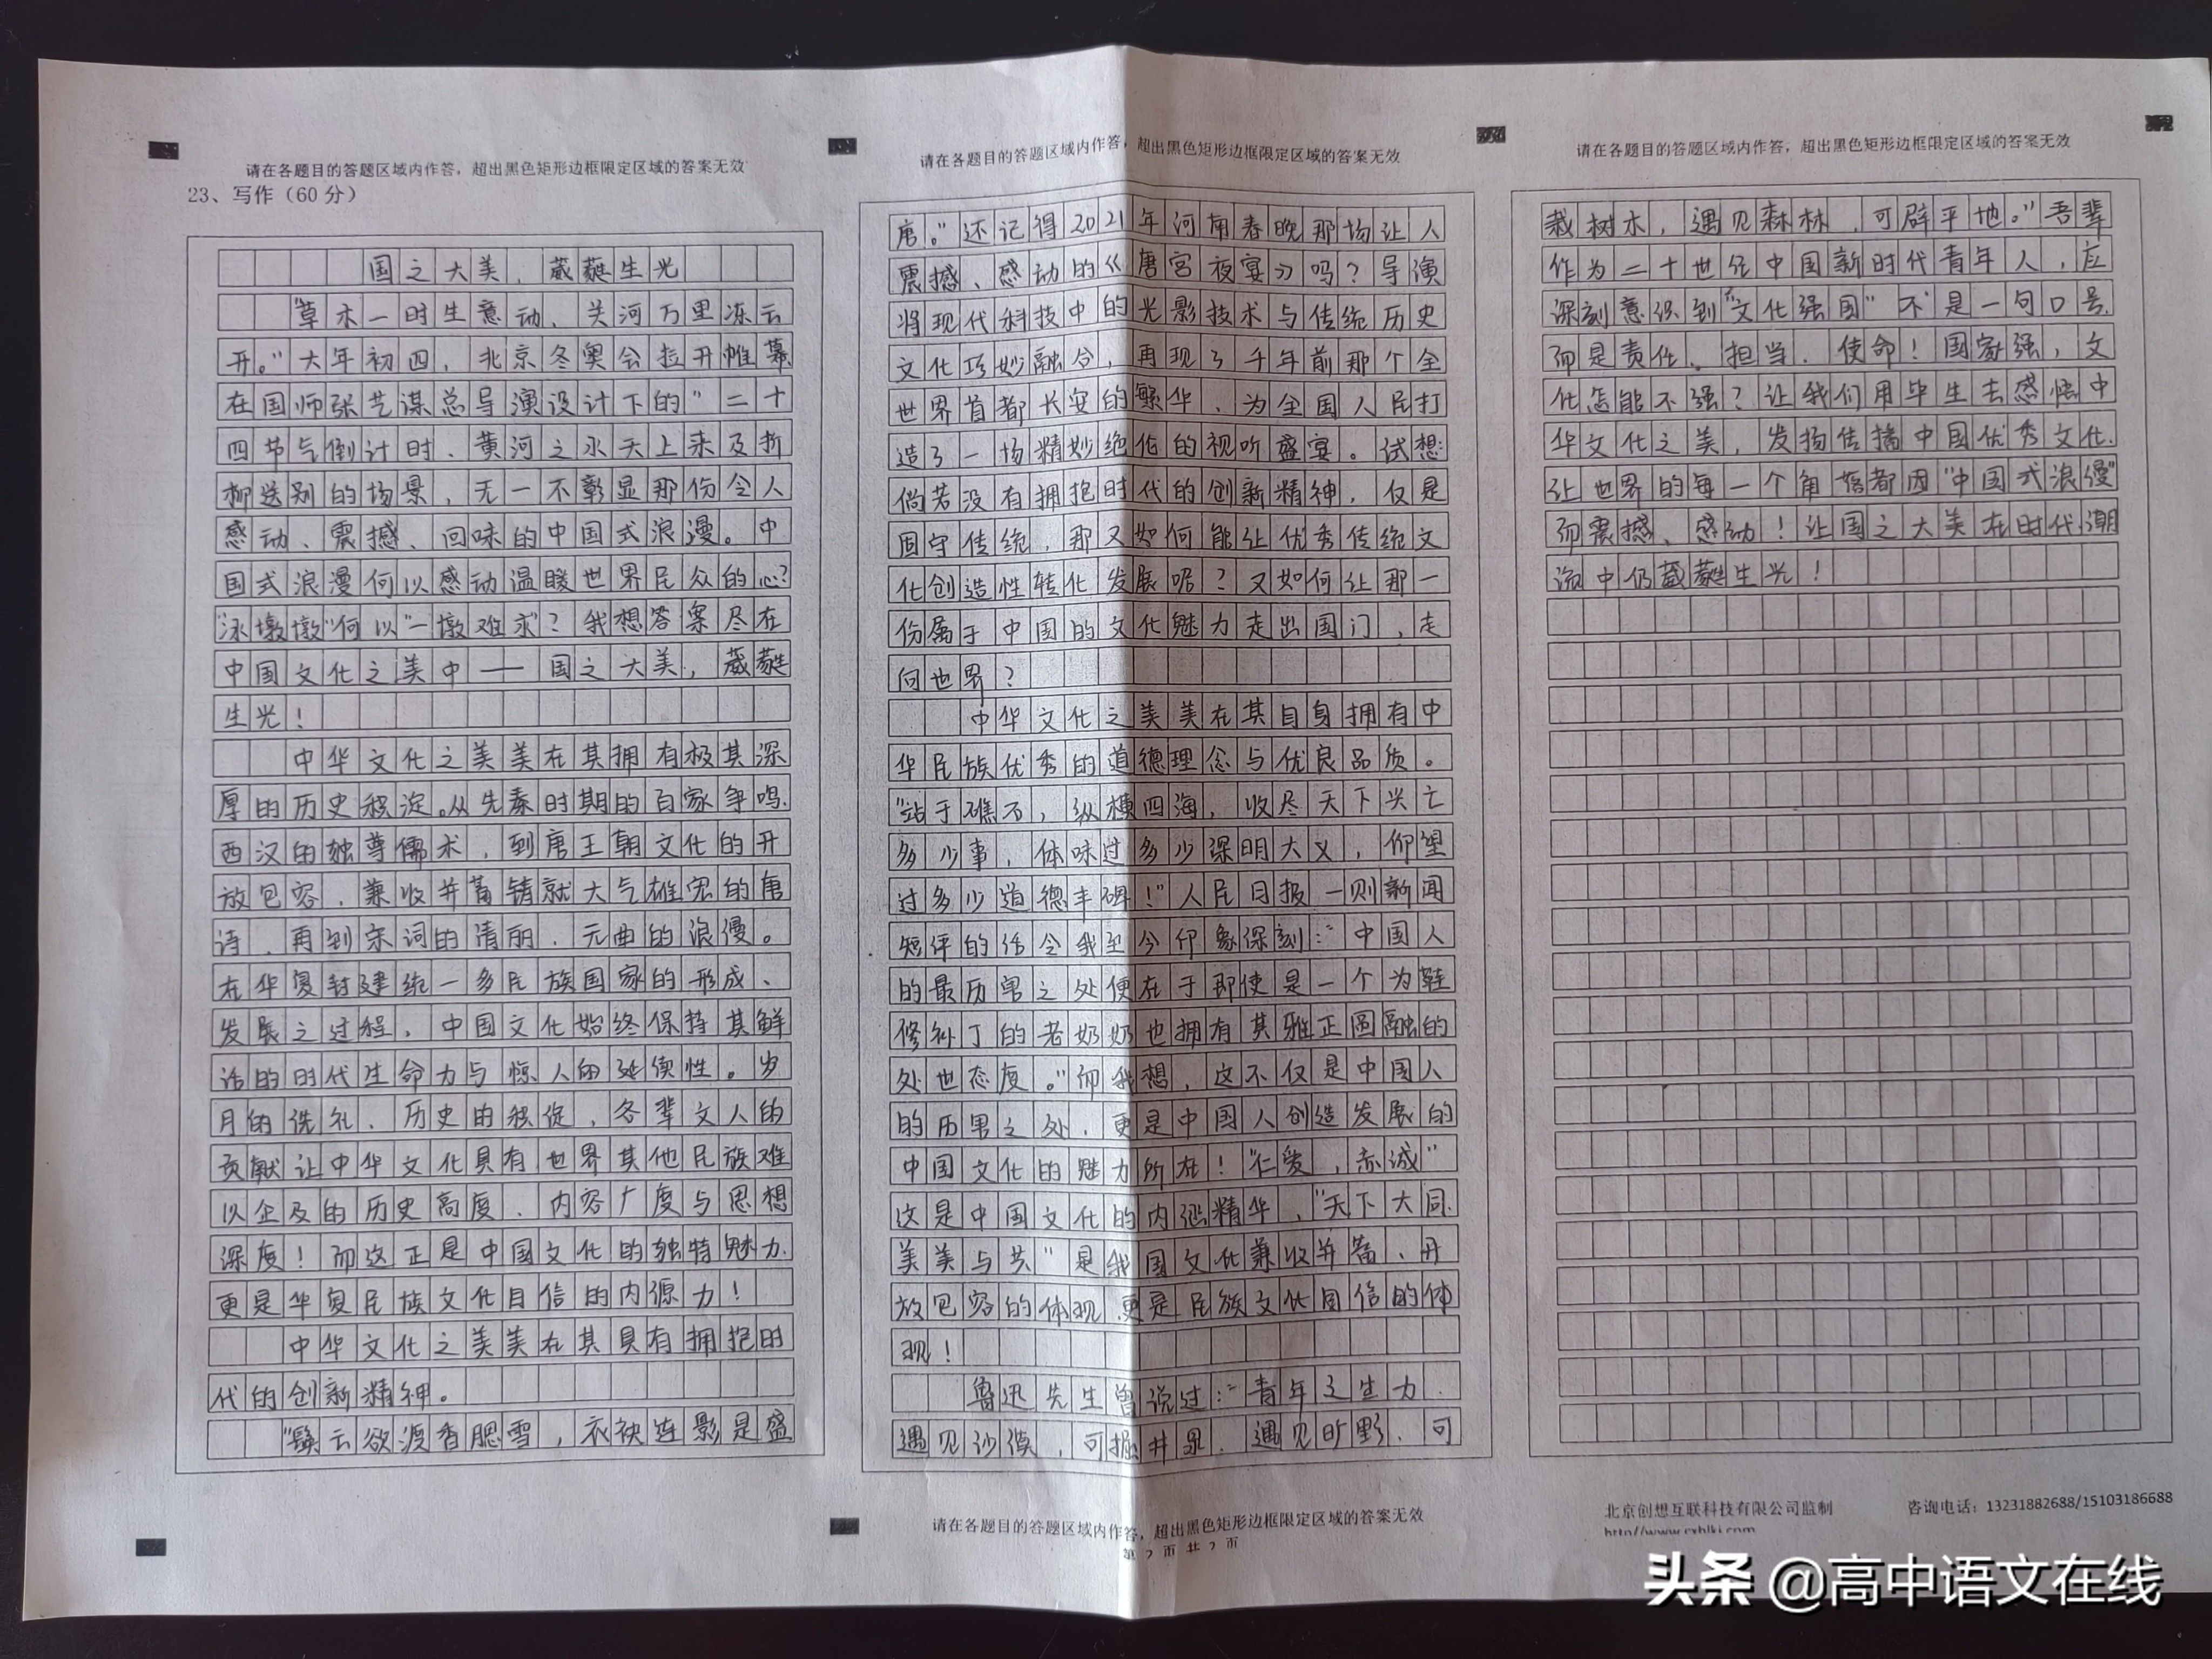 请在各题目的答题区域内作答，超出黑色矩形边框限定区域的答案无效
23、写作（60 分）
国之大美，葳蕤生光
“草木一时生意动、关河万里冻云
开。”大年初四，北京冬奥会拉开帷幕
在国师张艺谋总导演设计下的“二十
四节气倒计时、黄河之水天上来及折
柳送别的场景，无一不彰显那份令人
感动、震撼、回味的中国式浪漫。中
国式浪漫何以感动温暖世界民众的心？
“冰墩墩”何以“一墩难求”？我想答案尽在
中国文化之美中——国之大美，葳蕤
生光！
中华文化之美美在其拥有极其深
厚的历史积淀。从先秦时期的百家争鸣、
西汉的独尊儒术，到唐王朝文化的开
放包容、兼收并蓄铸就大气雄宏的唐
诗、再到宋词的清丽、元曲的浪漫。
在华夏封建统一多民族国家的形成、
发展之过程，中国文化始终保持其鲜
活的时代生命力与惊人的延续性。岁
月的洗礼、历史的积淀，各辈文人的
贡献让中华文化具有世界其他民族难
以企及的历史高度、内容广度与思想
深度！而这正是中国文化的独特魅力，
更是华夏民族文化自信的内源力！
中华文化之美美在其具有拥抱时
代的创新精神。
“鬓云欲渡香腮雪，衣袂连影是盛
请在各题目的答题区域内作答，超出黑色矩形边框限定区域的答案无效
唐。”还记得2021年河南春晚那场让人
震撼、感动的《唐宫夜宴》吗？导演
将现代科技中的光影技术与传统历史
文化巧妙融合，再现了千年前那个全
世界首都长安的繁华、为全国人民打
造了一场精妙绝伦的视听盛宴。试想
倘若没有拥抱时代的创新精神，仅是
固守传统，那又如何能让优秀传统文
化创造性转化发展呢？又如何让那一
份属于中国的文化魅力走出国门，走
向世界？
中华文化之美美在其自身拥有中
华民族优秀的道德理念与优良品质。
“站于礁石，纵横四海，收尽天下兴亡
多少事，体味过多少深明大义，仰望
过多少道德丰碑！”人民日报一则新闻
短评的话令我至今印象深刻：“中国人
的最历害之处便在于即使是一个为鞋
修补丁的老奶奶也拥有其雅正圆融的
处世态度。”而我想，这不仅是中国人
的历害之处，更是中国人创造发展的
中国文化的魅力所在！“仁爱，赤诚”
这是中国文化的内涵精华，“天下大同，
美美与共”是我国文化兼收并蓄、开
放包容的体现，更是民族文化自信的体
现！
鲁迅先生曾说过：“青年之生力，
遇见沙漠，可掘井泉，遇见旷野，可
请在各题目的答题区域内作答，超出黑色矩形边框限定区域的答案无效
第2页共2页
请在各题目的答题区域内作答，超出黑色矩形边框限定区域的答案无效
栽树木，遇见森林，可辟平地。”吾辈
作为二十世纪中国新时代青年人，应
深刻意识到“文化强国”不是一句口号，
而是责任、担当、使命！国家强，文
化怎能不强？让我们用毕生去感悟中
华文化之美，发扬传播中国优秀文化，
让世界的每一个角落都因“中国式浪漫”
而震撼、感动！让国之大美在时代潮
流中仍葳蕤生光！
北京创想互联科技有限公司监制
咨询电话：13231882688/15103186688
头条 @高中语文在线